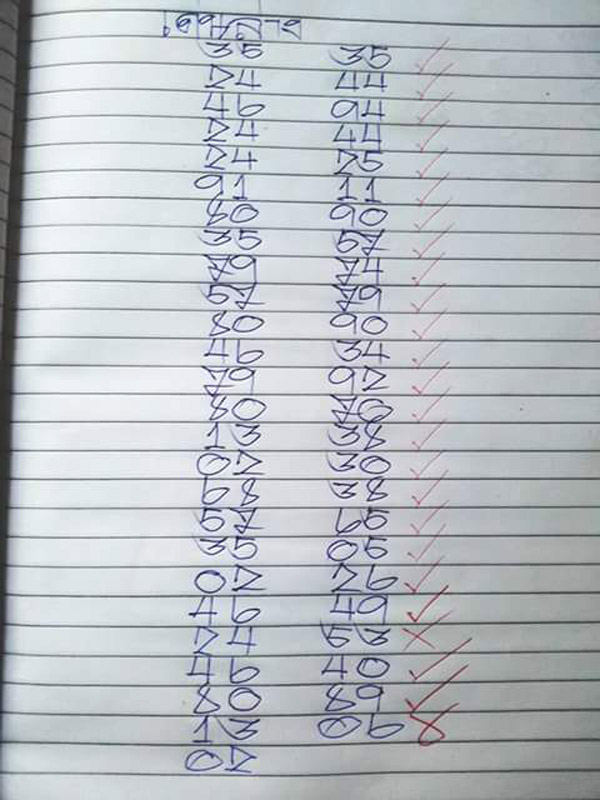 35 35 ✓
24 44 ✓
46 94 ✓
24 44 ✓
24 25 ✓
91 11 ✓
80 90 ✓
35 57 ✓
79 74 ✓
57 79 ✓
80 90 ✓
46 34 ✓
79 92 ✓
80 70 ✓
13 38 ✓
02 30 ✓
68 38 ✓
57 65 ✓
35 05 ✓
02 26 ✓
46 49 ✓
24 53 ×
46 40 ✓
80 89 ✓
13 06
02